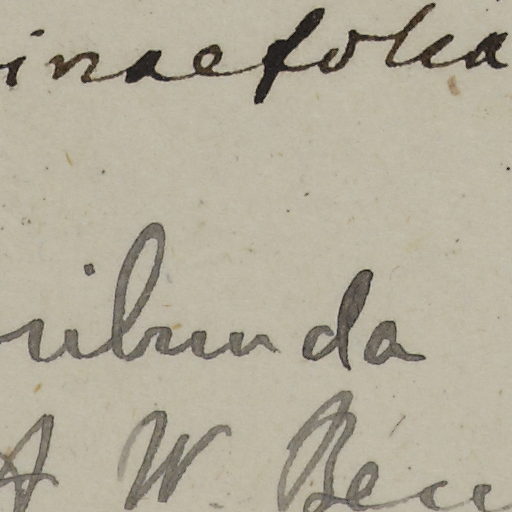 inaefolia
ribunda
A W. Ben